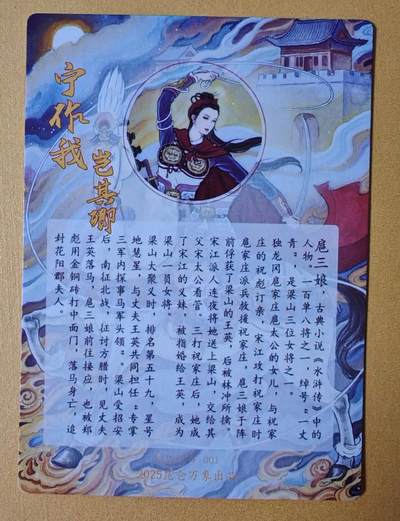 宁作我
岂其卿
扈三娘，古典小说《水浒传》中的
人物，一百单八将之一，绰号“一丈
青”，是梁山三位女将之一。
独龙冈扈家庄扈太公的女儿，与祝家
庄的祝彪订亲，宋江攻打祝家庄时
扈家庄派兵救援祝家庄，扈三娘于阵
前俘获了梁山的王英，后被林冲所擒，
宋江派人连夜将她送上梁山，交给其
父宋太公看管。三打祝家庄后，她成
了宋江的义妹，被指婚给王英，成为
梁山一员女将。
梁山大聚义时，排名第五十九，星号
地慧星，与丈夫王英共同担任“专掌
三军内探事马军头领”。梁山受招安
后，南征北战，征讨方腊时，见丈夫
王英落马，扈三娘前往接应，也被郑
彪用金铜砖打中面门，落马身亡，追
封花阳郡夫人。
001
2025昆仑万象出品